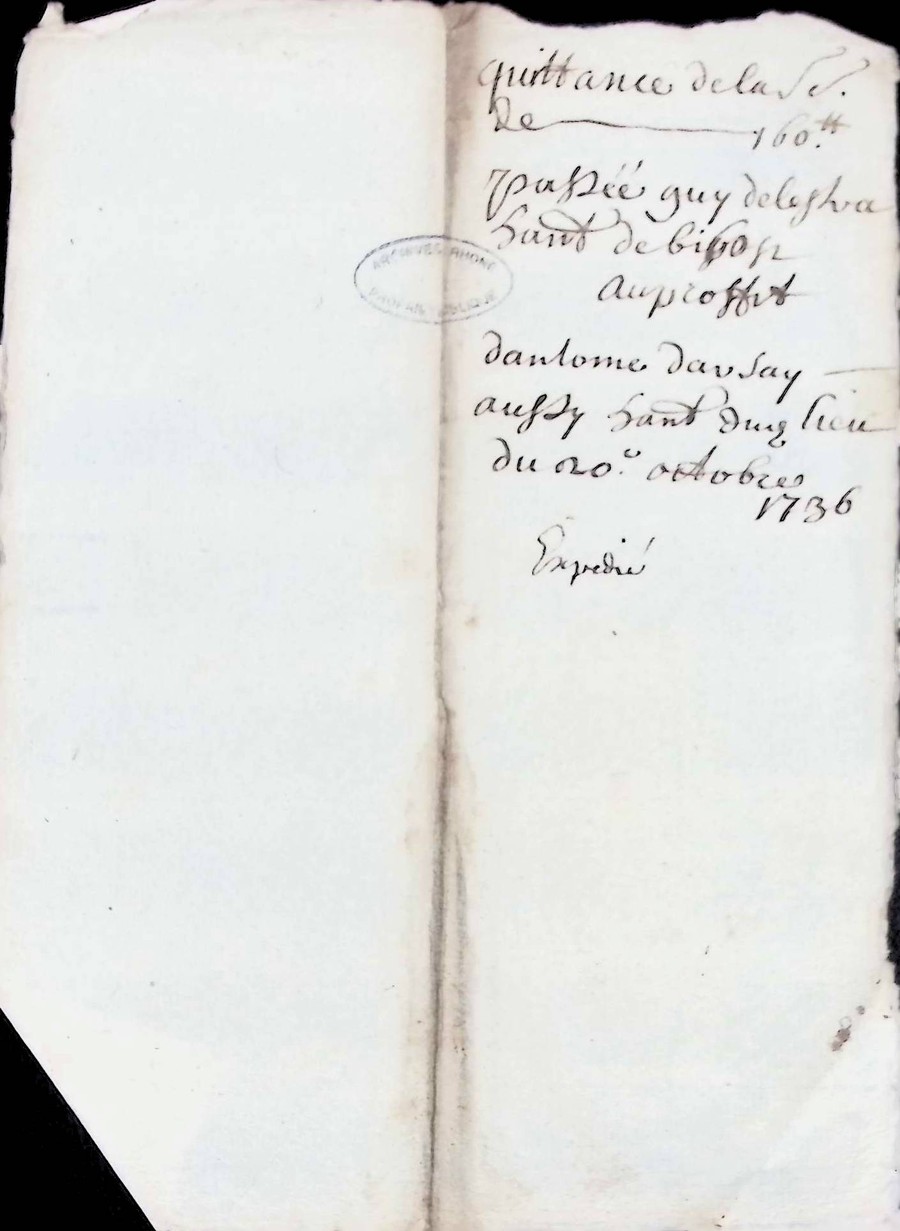 quittance de la S.
de 160.tt
passéé guy delestra
hant de bibost
au proffit
dantome davsay
aussy hant dud lieu
du 20.e octobre
1736
Expedié
ARCHIVES RHONE
PROPRIETE PUBLIQUE